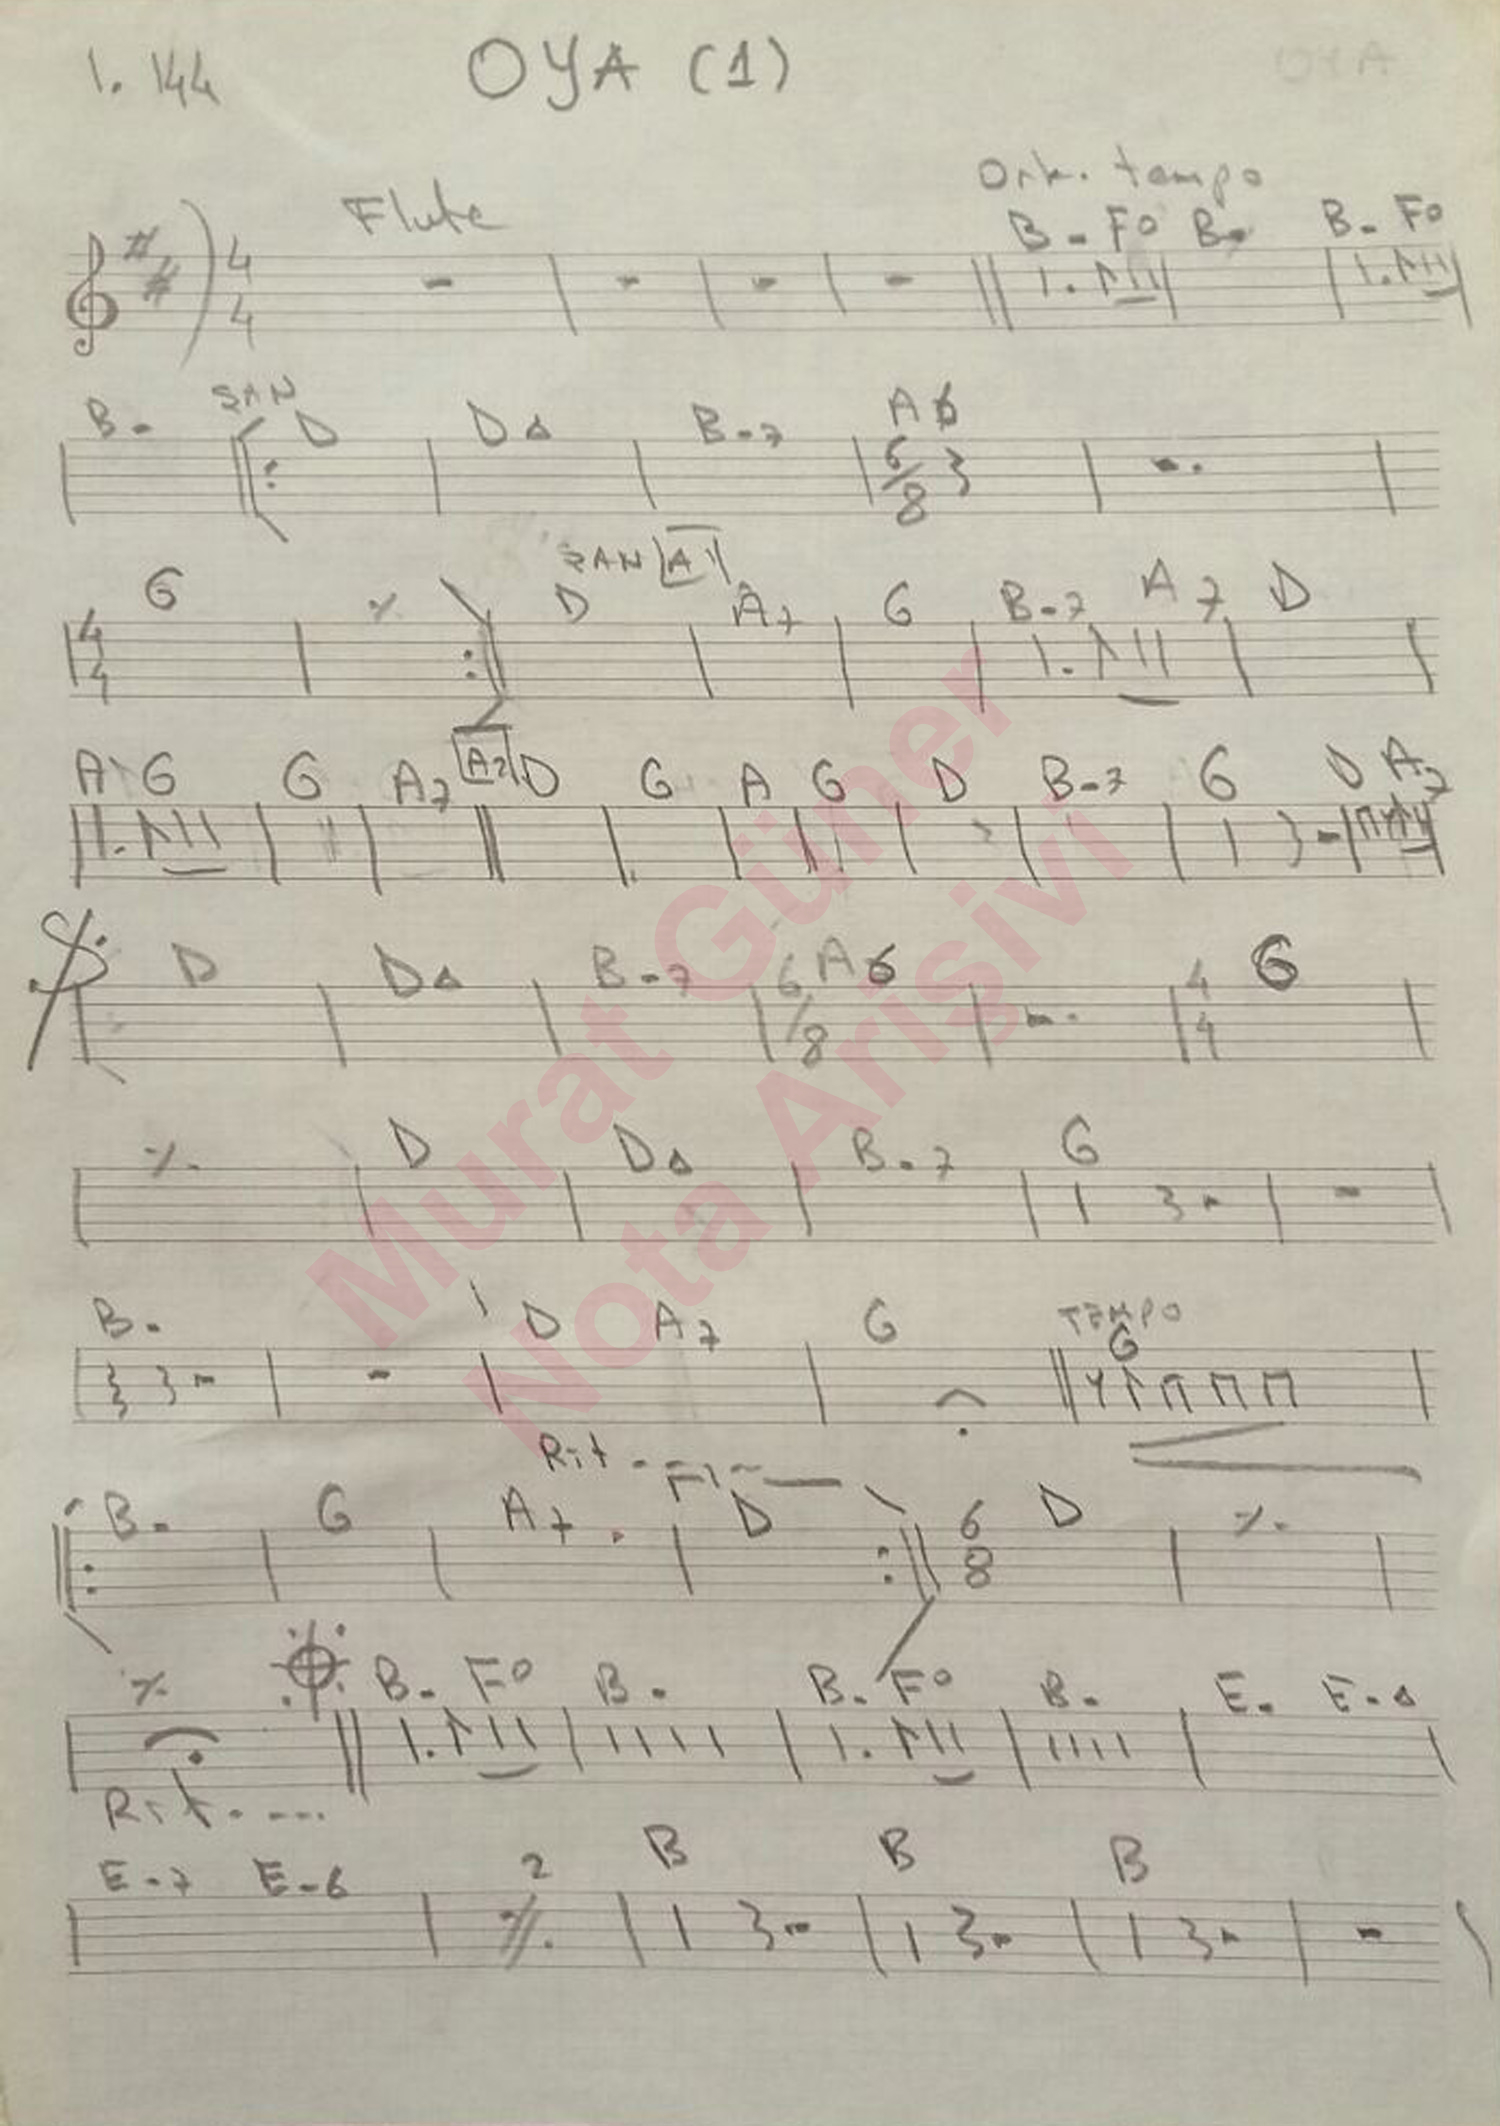 1. 144 OYA (1) OYA
Flute Ork. tempo
B- F° B- B- F°
4
4
B- ŞAN D D△ B-7 A6
6/8
ŞAN A1
G ٪ D A7 G B-7 A7 D
4
4
A G G A7 A2 D G A G D B-7 G D A7
D D△ B-7 6/8 A6 4/4 G
٪ D D△ B-7 G
B- D A7 G TEMPO
G
Rit - - -
B- G A7 D 6/8 D ٪
٪ B- F° B- B- F° B- E- E-△
Rit. ---
E-7 E-6 2 B B B
Murat Güner
Nota Arişivi